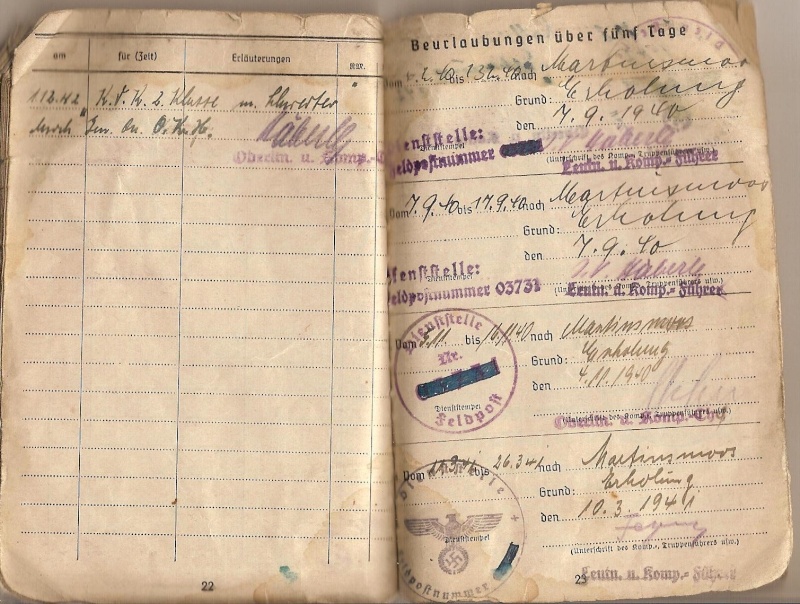 am für (Zeit) Erläuterungen
1.12.42 K.V.K. 2. Klasse m. Schwerter
durch O.K.H.
Häberle
Oberltn. u. Komp.-
22
Beurlaubungen über fünf Tage
Vom bis 13.2.40 nach Martinsmoos
Grund: Erholung
den 7.9.1940
Dienststelle:
Dienststempel
Feldpostnummer
(Unterschrift des Komp.-, Truppenführers usw.)
Leutn. u. Komp.-Führer
Vom 7.9.40 bis 17.9.40 nach Martinsmoos
Grund: Erholung
den 7.9.40
Dienststelle:
Dienststempel
Feldpostnummer 03731
Häberle
Leutn. u. Komp.-Führer
Dienststelle
Nr.
Dienststempel
Feldpost
Vom 5.11. bis 16.11.40 nach Martinsmoos
Grund: Erholung
den 4.11.1940
(Unterschrift des Komp.-, Truppenführers usw.)
Oberltn. u. Komp.-Chef
Vom bis 26.3.41 nach Martinsmoos
Grund: Erholung
den 10.3.1941
Dienststelle
Dienststempel
Feldpostnummer
(Unterschrift des Komp.-, Truppenführers usw.)
Leutn. u. Komp.-Führer
23